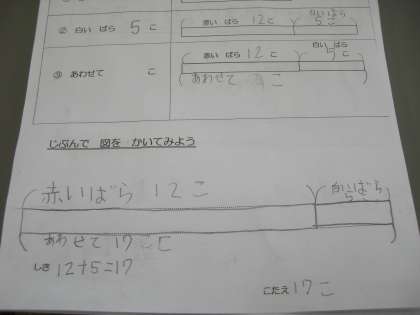 赤い ばら 12こ 白い ばら 5こ
② 白い ばら 5 こ
赤い ばら 12こ 白い ばら 5こ
③ あわせて こ
あわせて こ
じぶんで 図を かいてみよう
赤いばら 12こ 白いばら 5こ
あわせて 17こ
しき 12+5=17
こたえ 17こ